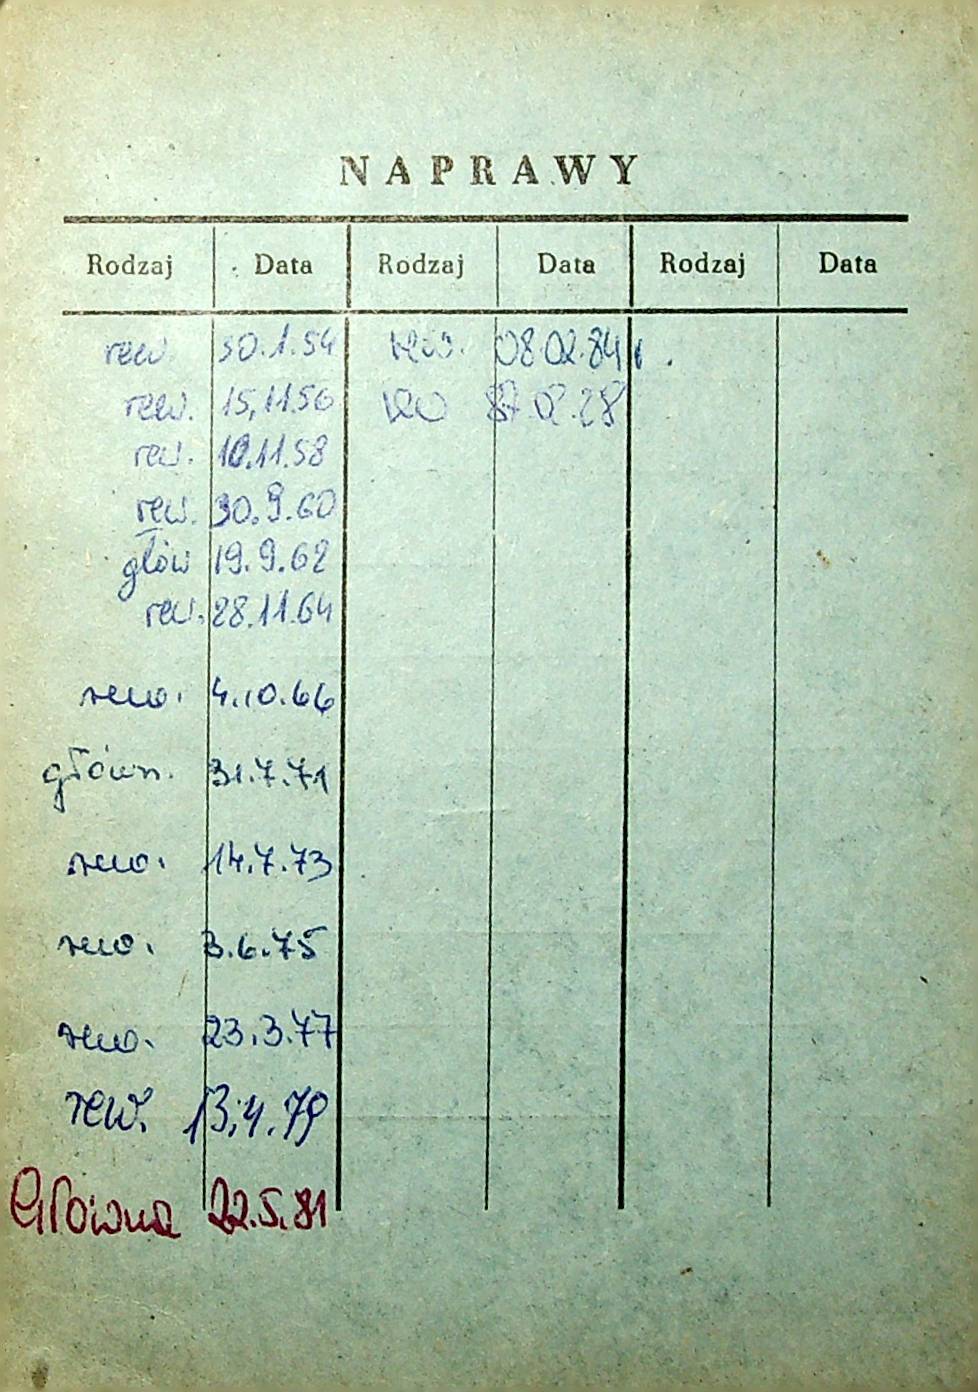 NAPRAWY
Rodzaj Data Rodzaj Data Rodzaj Data
rew. 30.1.54 rew. 08.02.84
rew. 15.11.56 rew 87.02.28
rew. 10.11.58
rew. 30.9.60
głów 19.9.62
rew. 28.11.64
rew. 4.10.66
główn. 31.7.71
rew. 14.7.73
rew. 3.6.75
rew. 23.3.77
rew. 13.4.79
Główna 22.5.81